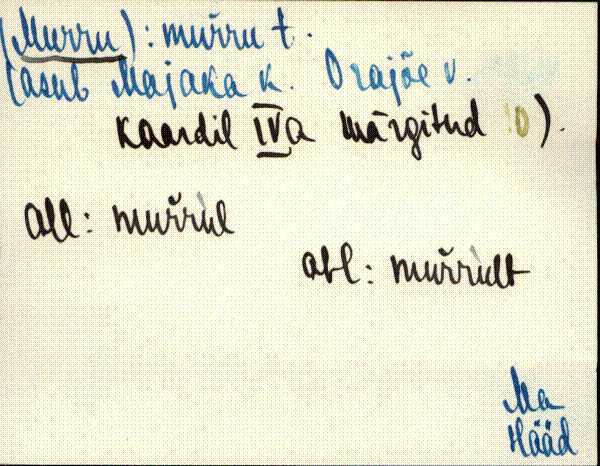 (Murru): muřru t.
(asub Majaka k. Orajõe v.
Kaardil IVa märgitud 10).
all: muřrul
abl: muřrult
Ma
Hääd